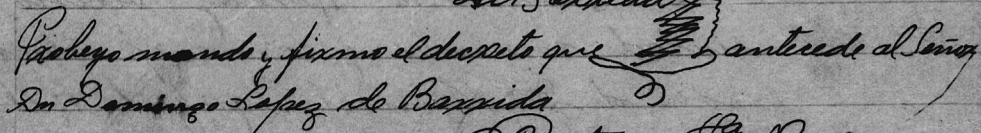 Probeyo mando y firmo el decreto que antecede al Señor
Dn Domingo Lopez de Barrida